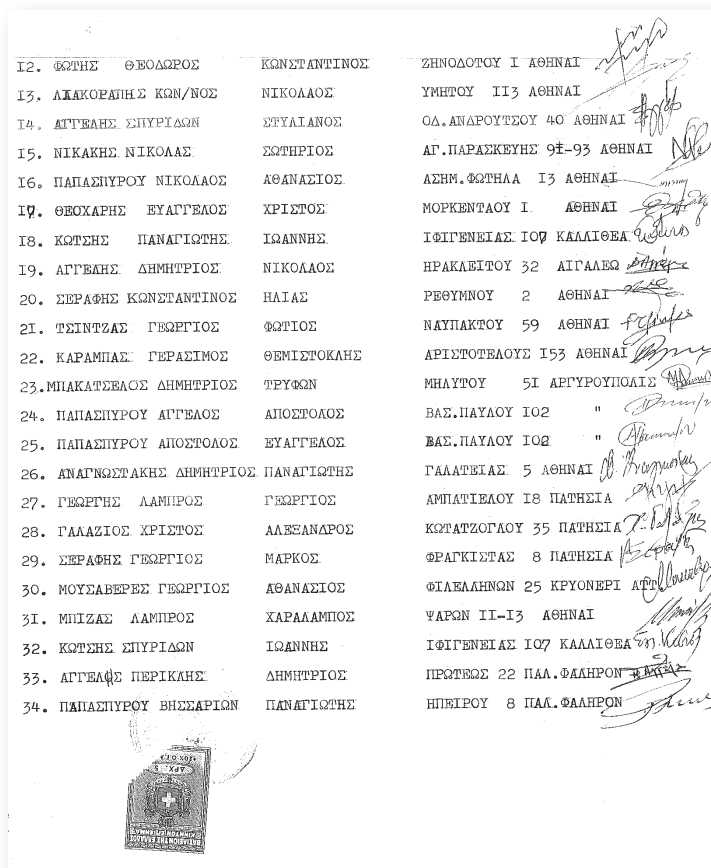 12. ΦΩΤΗΣ ΘΕΟΔΩΡΟΣ ΚΩΝΣΤΑΝΤΙΝΟΣ ΖΗΝΟΔΟΤΟΥ Ι ΑΘΗΝΑΙ
13. ΚΩΝ/ΝΟΣ ΝΙΚΟΛΑΟΣ ΥΜΗΤΟΥ ΙΙ3 ΑΘΗΝΑΙ
14. ΑΓΓΕΛΗΣ ΣΠΥΡΙΔΩΝ ΣΤΥΛΙΑΝΟΣ ΟΔ.ΑΝΔΡΟΥΤΣΟΥ 40 ΑΘΗΝΑΙ
15. ΝΙΚΑΚΗΣ ΝΙΚΟΛΑΣ ΣΩΤΗΡΙΟΣ ΑΓ.ΠΑΡΑΣΚΕΥΗΣ 9Ι-93 ΑΘΗΝΑΙ
16. ΠΑΠΑΣΠΥΡΟΥ ΝΙΚΟΛΑΟΣ ΑΘΑΝΑΣΙΟΣ ΑΣΗΜ.ΦΩΤΗΛΑ Ι3 ΑΘΗΝΑΙ
17. ΘΕΟΧΑΡΗΣ ΕΥΑΓΓΕΛΟΣ ΧΡΙΣΤΟΣ ΜΟΡΚΕΝΤΑΟΥ Ι ΑΘΗΝΑΙ
18. ΚΩΤΣΗΣ ΠΑΝΑΓΙΩΤΗΣ ΙΩΑΝΝΗΣ ΙΦΙΓΕΝΕΙΑΣ ΙΟ7 ΚΑΛΛΙΘΕΑ
19. ΑΓΓΕΛΗΣ ΔΗΜΗΤΡΙΟΣ ΝΙΚΟΛΑΟΣ ΗΡΑΚΛΕΙΤΟΥ 32 ΑΙΓΑΛΕΩ
20. ΣΕΡΑΦΗΣ ΚΩΝΣΤΑΝΤΙΝΟΣ ΗΛΙΑΣ ΡΕΘΥΜΝΟΥ 2 ΑΘΗΝΑΙ
21. ΤΣΙΝΤΖΑΣ ΓΕΩΡΓΙΟΣ ΦΩΤΙΟΣ ΝΑΥΠΑΚΤΟΥ 59 ΑΘΗΝΑΙ
22. ΚΑΡΑΜΠΑΣ ΓΕΡΑΣΙΜΟΣ ΘΕΜΙΣΤΟΚΛΗΣ ΑΡΙΣΤΟΤΕΛΟΥΣ Ι53 ΑΘΗΝΑΙ
23.ΜΠΑΚΑΤΣΕΛΟΣ ΔΗΜΗΤΡΙΟΣ ΤΡΥΦΩΝ ΜΗΛΥΤΟΥ 5Ι ΑΡΓΥΡΟΥΠΟΛΙΣ
24. ΠΑΠΑΣΠΥΡΟΥ ΑΓΓΕΛΟΣ ΑΠΟΣΤΟΛΟΣ ΒΑΣ.ΠΑΥΛΟΥ ΙΟ2 "
25. ΠΑΠΑΣΠΥΡΟΥ ΑΠΟΣΤΟΛΟΣ ΕΥΑΓΓΕΛΟΣ ΒΑΣ.ΠΑΥΛΟΥ ΙΟ2 "
26. ΑΝΑΓΝΩΣΤΑΚΗΣ ΔΗΜΗΤΡΙΟΣ ΠΑΝΑΓΙΩΤΗΣ ΓΑΛΑΤΕΙΑΣ 5 ΑΘΗΝΑΙ
27. ΓΕΩΡΓΗΣ ΛΑΜΠΡΟΣ ΓΕΩΡΓΙΟΣ ΑΜΠΑΤΙΕΛΟΥ Ι8 ΠΑΤΗΣΙΑ
28. ΓΑΛΑΖΙΟΣ ΧΡΙΣΤΟΣ ΑΛΕΞΑΝΔΡΟΣ ΚΩΤΑΤΖΟΓΛΟΥ 35 ΠΑΤΗΣΙΑ
29. ΣΕΡΑΦΗΣ ΓΕΩΡΓΙΟΣ ΜΑΡΚΟΣ ΦΡΑΓΚΙΣΤΑΣ 8 ΠΑΤΗΣΙΑ
30. ΜΟΥΣΑΒΕΡΕΣ ΓΕΩΡΓΙΟΣ ΑΘΑΝΑΣΙΟΣ ΦΙΛΕΛΛΗΝΩΝ 25 ΚΡΥΟΝΕΡΙ ΑΤΤ
31. ΜΠΙΖΑΣ ΛΑΜΠΡΟΣ ΧΑΡΑΛΑΜΠΟΣ ΨΑΡΩΝ ΙΙ-Ι3 ΑΘΗΝΑΙ
32. ΚΩΤΣΗΣ ΣΠΥΡΙΔΩΝ ΙΩΑΝΝΗΣ ΙΦΙΓΕΝΕΙΑΣ ΙΟ7 ΚΑΛΛΙΘΕΑ
33. ΑΓΓΕΛΗΣ ΠΕΡΙΚΛΗΣ ΔΗΜΗΤΡΙΟΣ ΠΡΩΤΕΩΣ 22 ΠΑΛ.ΦΑΛΗΡΟΝ
34. ΠΑΠΑΣΠΥΡΟΥ ΒΗΣΣΑΡΙΩΝ ΠΑΝΑΓΙΩΤΗΣ ΗΠΕΙΡΟΥ 8 ΠΑΛ.ΦΑΛΗΡΟΝ
ΔΡΧ.
ΒΑΣΙΛΕΙΟΝ ΤΗΣ ΕΛΛΑΔΟΣ